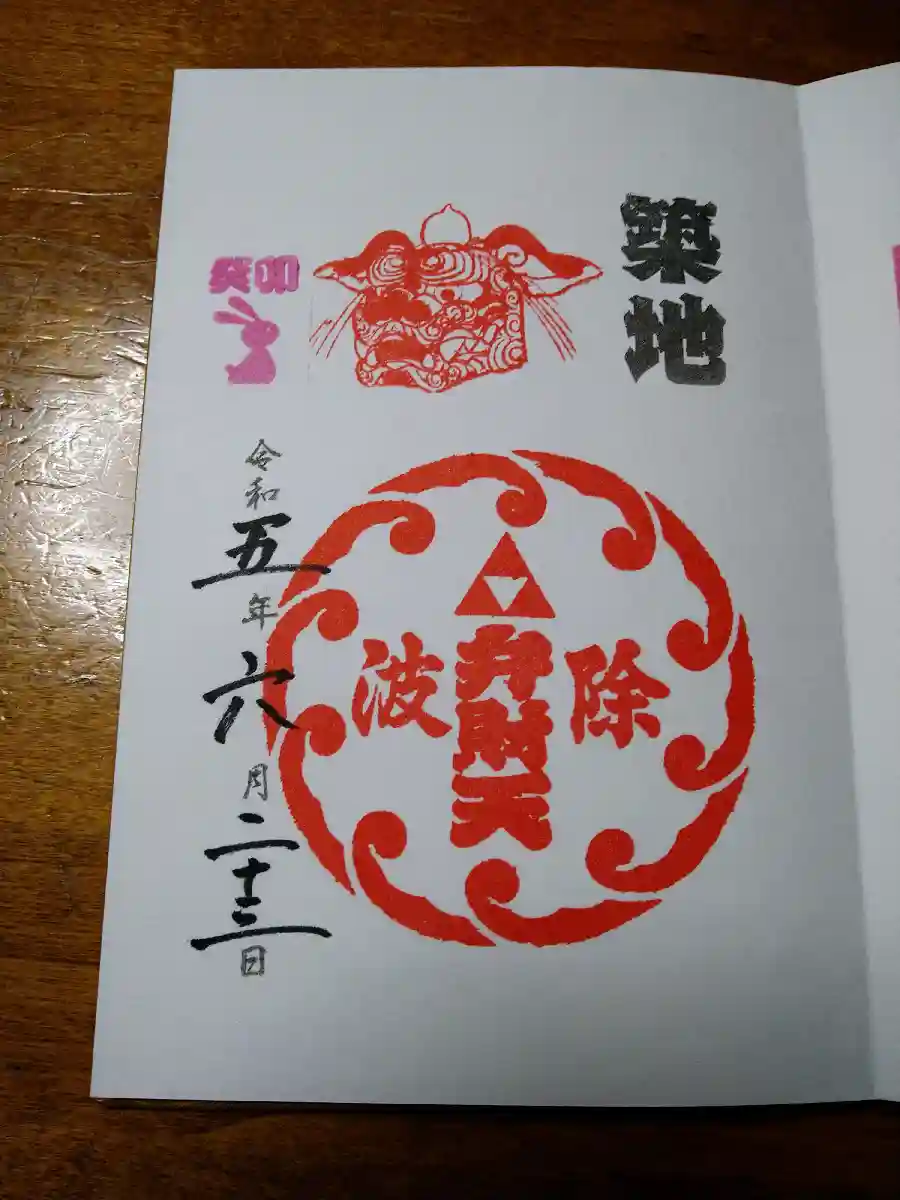 築地
波除
弁財天
癸卯
令和五年六月二十三日